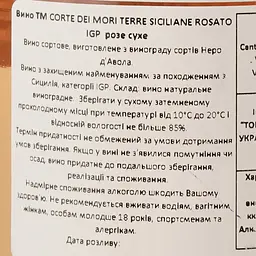 Вино ТМ CORTE DEI MORI TERRE SICILIANE ROSATO
IGP розе сухе
Вино сортове, виготовлене з винограду сортів Неро
д'Авола.
Вино з захищеним найменуванням за походженням з
Сицилія, категорії IGP. Склад: вино натуральне
виноградне. Зберігати у сухому затемненому
прохолодному місці при температурі від 10°С до 20°С і
відносній вологості не більше 85%.
Термін придатності не обмежений за умови дотримання
умов зберігання. Якщо у вині не з'явилися помутніння чи
осад, вино придатне до подальшого зберігання,
реалізації та споживання.
Надмірне споживання алкоголю шкодить Вашому
здоров'ю. Не рекомендується вживати водіям, вагітним
жінкам, особам молодше 18 років, спортсменам та
алергікам.
Дата розливу:
Cant
"ТО
УКРА
Хар
вн
кк
Алк.